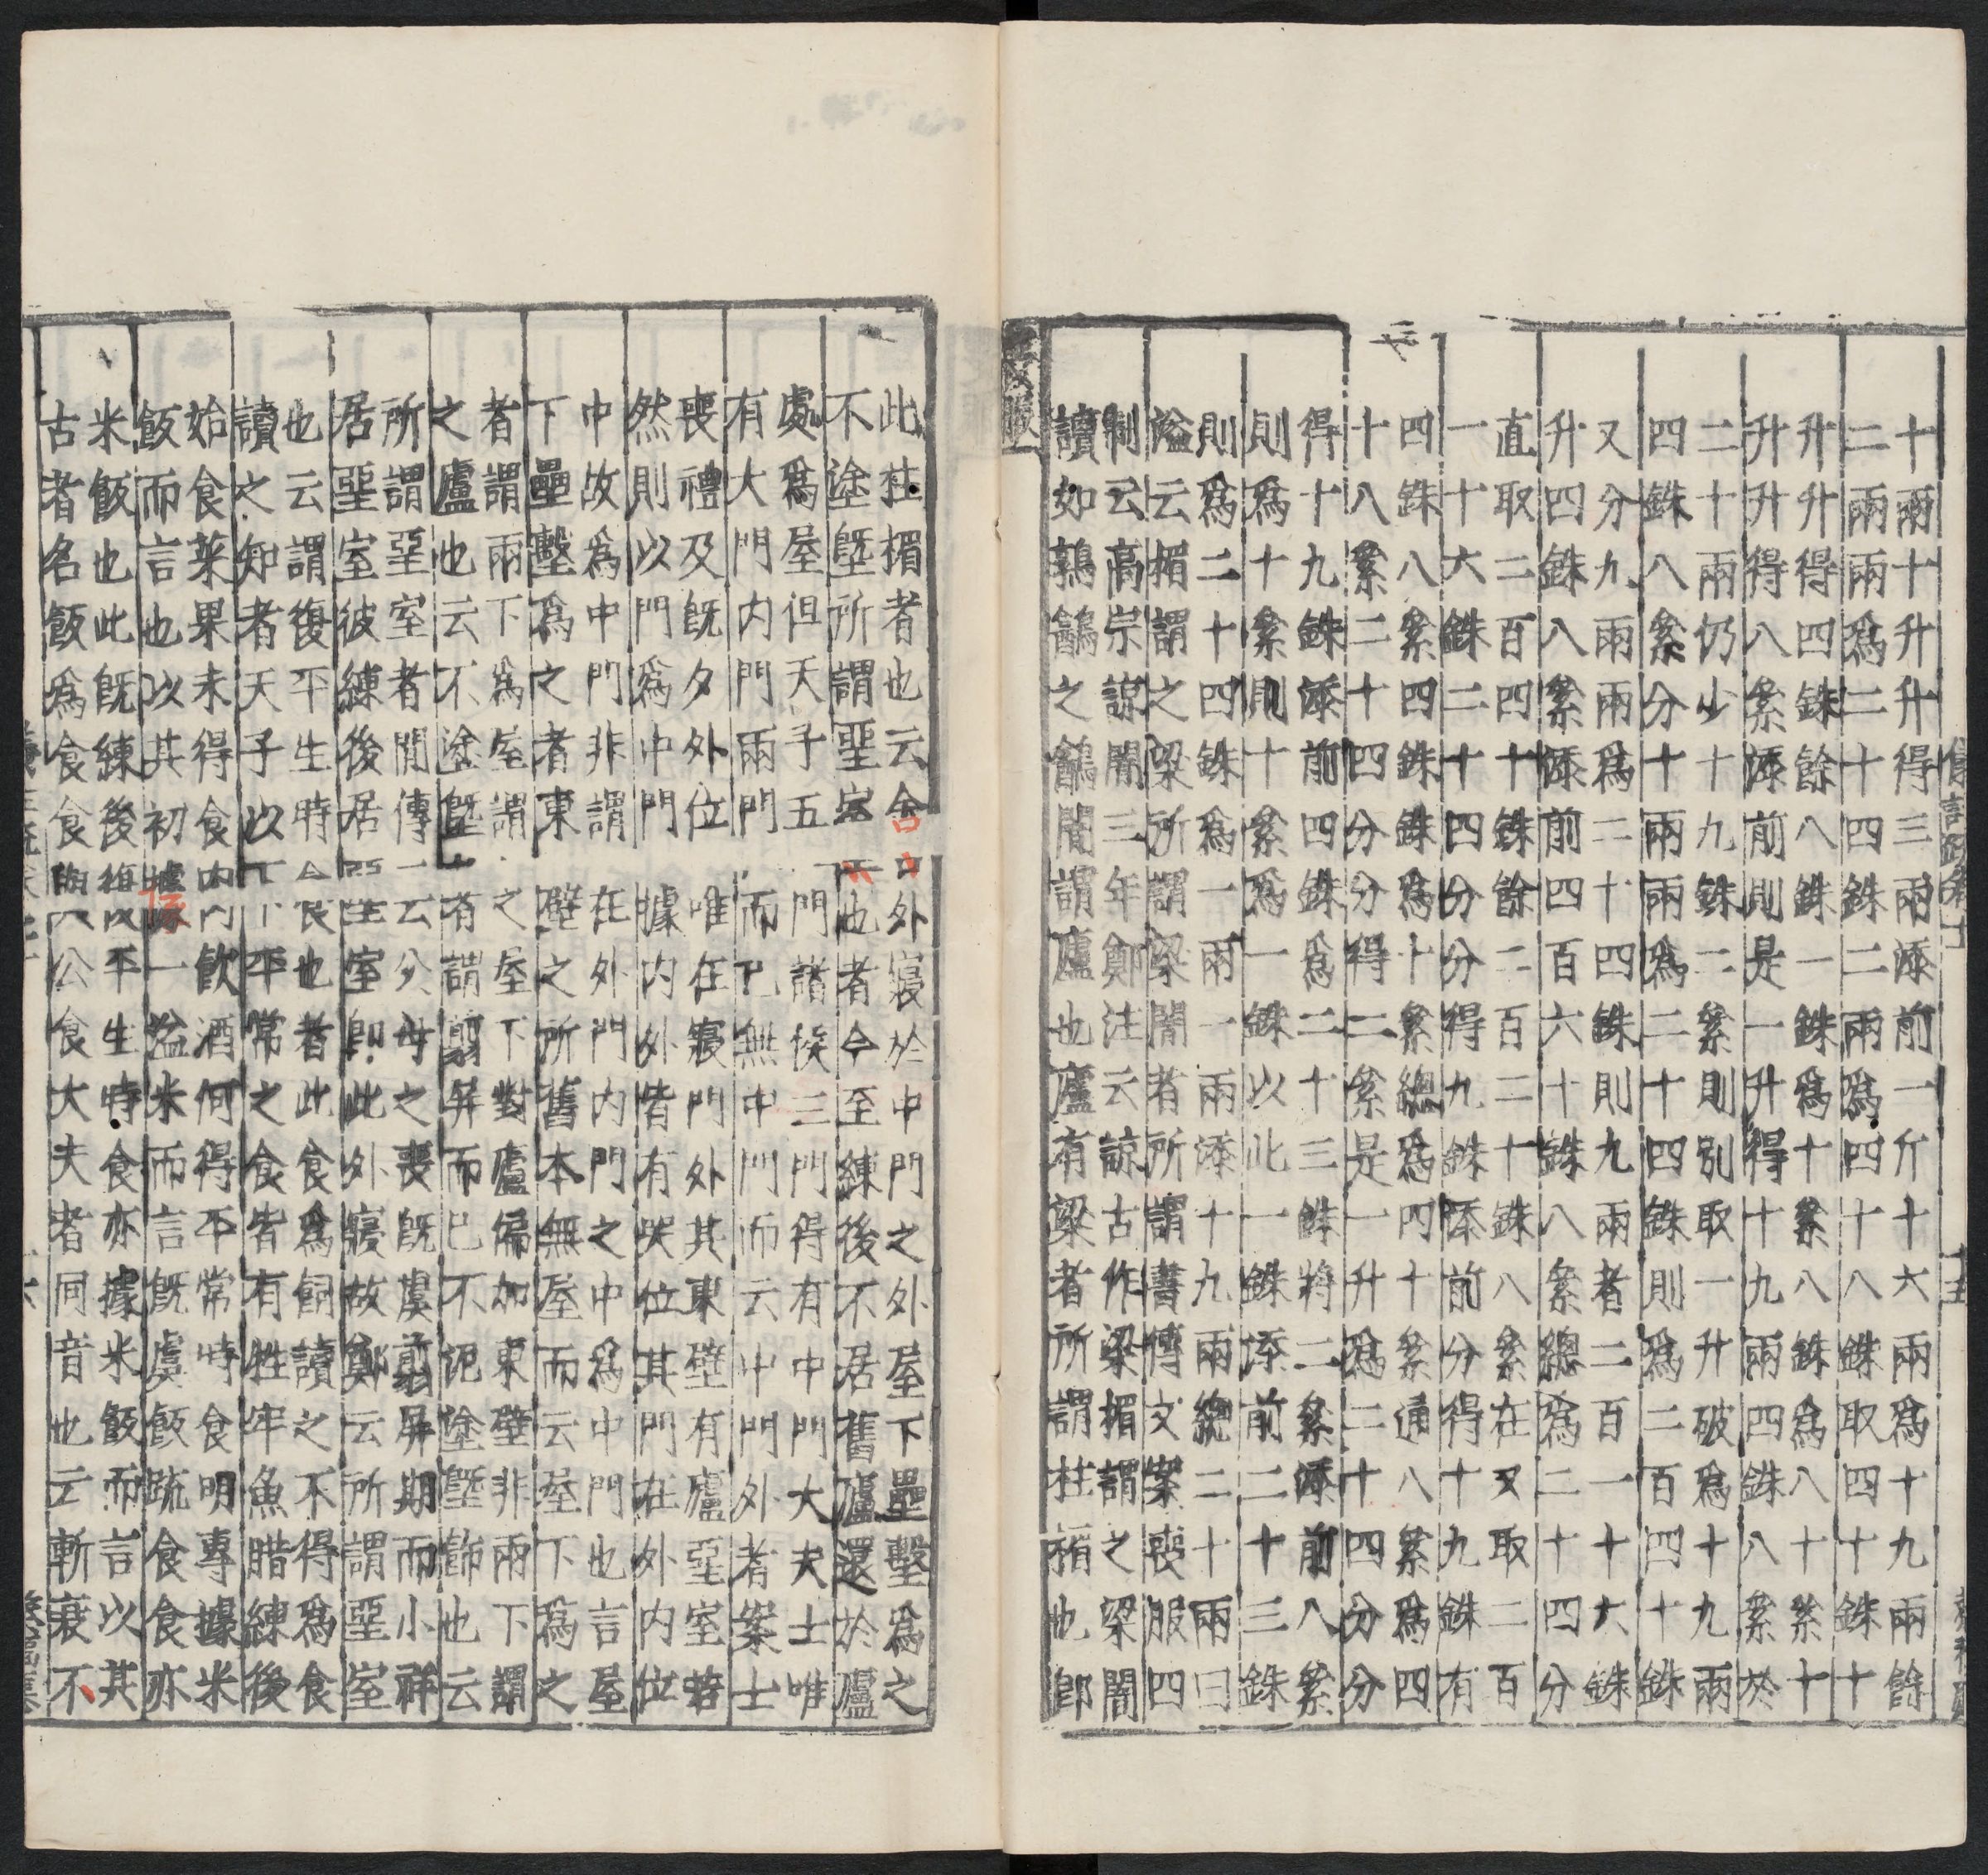 十兩兩十升升得三兩添前一斤十六兩爲十九兩餘
二兩兩爲二十四銖二兩爲四十八銖取四十銖十
升升得四銖餘八銖一銖爲十絫八銖爲八十絫十
升升得八絫添前則是一升得十九兩四銖八絫於
二十兩仍少十九銖二絫則別取一升破爲十九兩
四銖八絫分十兩兩爲二十四銖則爲二百四十銖
又分九兩兩爲二十四銖則九兩者二百一十六銖
升四銖八絫添前四百六十銖八絫總爲二十四分
直取二百四十銖餘二百二十銖八絫在又取二百
一十六銖二十四分分得九銖添前分得十九銖有
四銖八絫四銖銖爲十絫總爲四十絫通八絫爲四
十八絫二十四分分得二絫是一升爲二十四分分
得十九銖添前四銖爲二十三銖將二絫添前八絫
則爲十絫則十絫爲一銖以此一銖添前二十三銖
則爲二十四銖爲一兩一兩添十九兩總二十兩曰
溢云楣謂之梁所謂梁闇者所謂書傳文案喪服四
制云高宗諒闇三年鄭注云諒古作梁楣謂之梁闇
讀如鶉鷃之鷃闇謂廬也廬有梁者所謂柱楣也卽
喪服
此柱楣者也云舍外寢於中門之外屋下壘墼爲之
不塗墍所謂堊室也者今至練後不居舊廬還於廬
處爲屋但天子五門諸侯三門得有中門大夫士唯
有大門内門兩門而已無中門而云中門外者案士
喪禮及旣夕外位唯在寢門外其東壁有廬堊室若
然則以門爲中門據内外皆有哭位其門在外内位
中故爲中門非謂在外門内門之中爲中門也言屋
下壘墼爲之者東壁之所舊本無屋而云屋下爲之
者謂兩下爲屋謂之屋下對廬偏加東壁非兩下謂
之廬也云不塗墍者謂翦屏而已不泥塗墍飾也云
所謂堊室者閒傳云父母之喪旣虞翦屏期而小祥
居堊室彼練後居堊室卽此外寢故鄭云所謂堊室
也云謂復平生時食也者此食爲飼讀之不得爲食
讀之知者天子以下平常之食皆有牲牢魚腊練後
始食菜果未得食肉飲酒何得平常時食明專據米
飯而言也以其初據一溢米而言旣虞飯疏食食亦
米飯也此旣練後復平生時食亦據米飯而言以其
古者名飯爲食與公食大夫者同音也云斬衰不